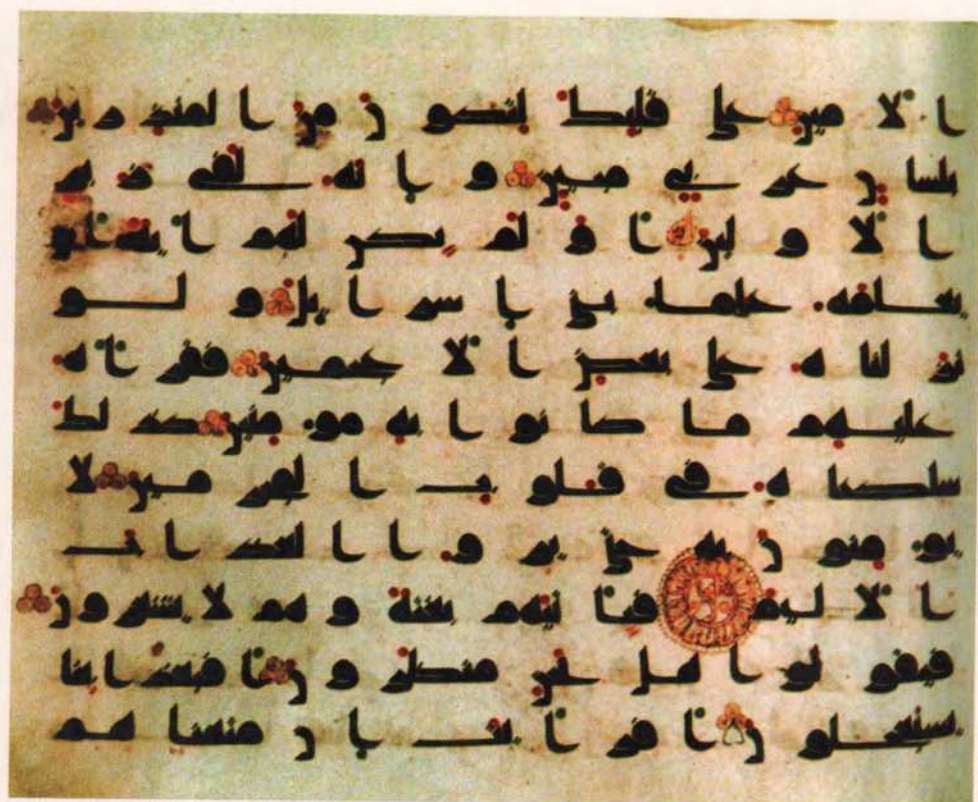 الامين على قلبك لتكون من المنذرين
بلسان عربي مبين وانه لفي زبر
الاولين اولم يكن لهم اية ان
يعلمه علما بني اسرايل ولو
نزلناه على بعض الاعجمين فقراه
عليهم ما كانوا به مومنين كذلك
سلكناه في قلوب المجرمين لا
يومنون به حتى يروا العذاب
الاليم فياتيهم بغتة وهم لا يشعرون
فيقولوا هل نحن منظرون افبعذابنا
يستعجلون افرايت ان متعناهم